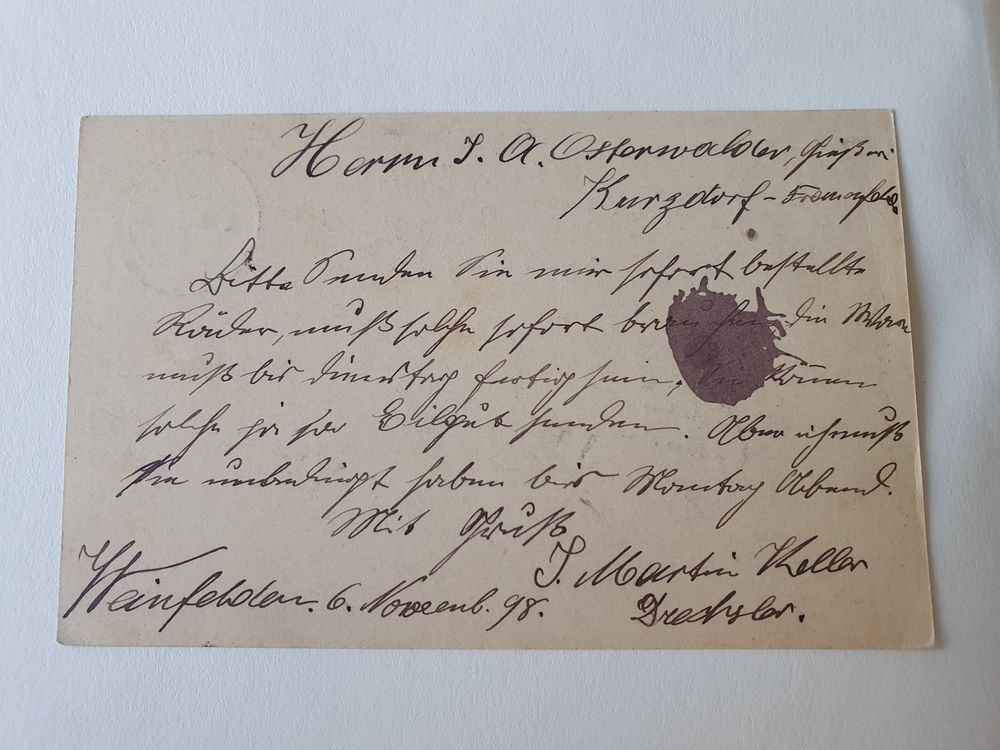 Herrn J. A. Osterwalder, Gießerei
Kurzdorf - Frauenfeld.
Bitte Senden Sie mir sofort bestellte
Räder, muß solche sofort brauchen, die Ware
muß bis Dienstag fertig sein, Sie können
solche ja per Eilgut senden. Aber ich muß
Sie unbedingt haben bis Montag Abend.
Mit Gruß
J. Martin Keller
Weinfelden. 6. Novemb. 98. Drechsler.